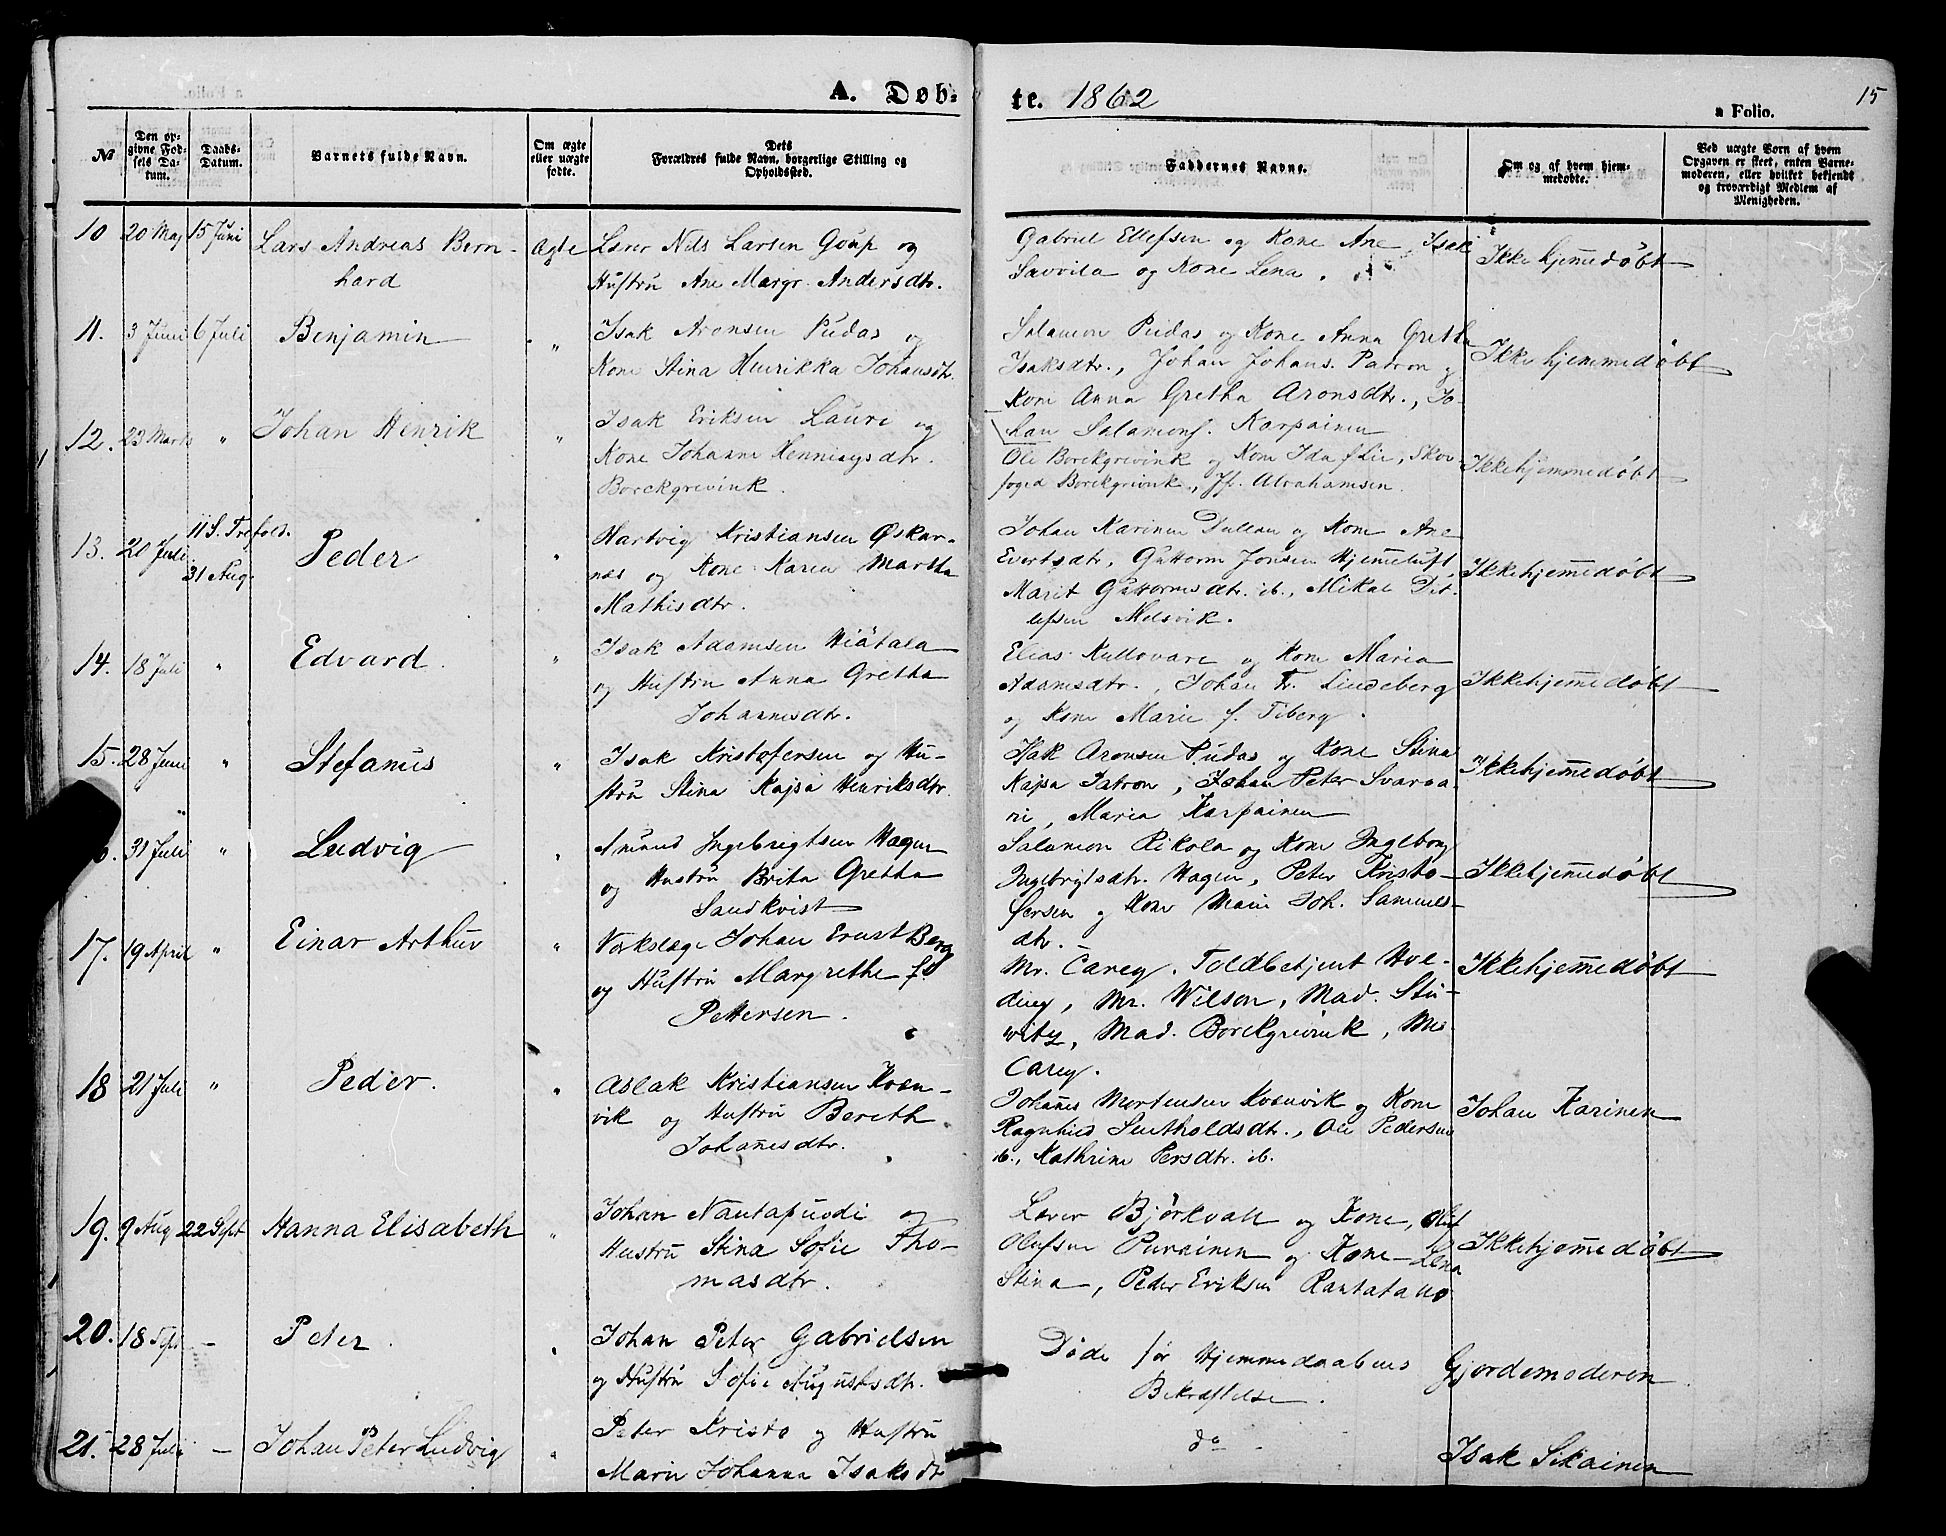 A. Døb- te. 1862
15
a Folio.
№
Den opgivne Fødsels Datum.
Daabs-Datum.
Barnets fulde Navn.
Om ægte eller uægte fødte.
Dets Forældres fulde Navn, borgerlige Stilling og Opholdssted.
Faddernes Navne.
Om og af hvem hjemmedøbte.
Ved uægte Born af hvem Opgaven er skeet, enten Barnemoderen, eller hvilket bekjendt og troværdigt Medlem af Menigheden.
10 20 Maj 15 Juni Lars Andreas Bern-
hard
Ægte
Lærer Nils Larsen Göup og
Hustru Ane Margr. Andersdtr.
Gabriel Ellefsen og Kone Ane, Isak
Savvila og Kone Lena.
Ikke hjemedøbt
11. 3 Juni 6 Juli Benjamin "
Isak Aronsen Pudas og
Kone Stina Henrikka Johansdtr.
Salamon Pudas og Kone Anna Gretha
Isaksdtr., Johan Johans. Patron og
Kone Anna Gretha Aronsdtr., Jo-
han Salamons. Karpainen
Ikke hjemmedøbt
12. 23 Marts " Johan Henrik "
Isak Eriksen Lauri og
Kone Johanne Henningsdtr.
Borckgrevink.
Ole Borckgrevink og Kone Ida f Lie, Skov-
foged Borckgrevink, Jfr. Abrahamsen.
Ikkehjemmedøbt
13. 20 Juli 11 S. Trefold.
31 Aug. Peder "
Hartvig Kristiansen Øskar-
næs og Kone Karen Martha
Mathisdtr.
Johan Karinen Dullau og Kone Ane
Evertsdtr, Guttorm Jonsen Hjemeluft,
Marit Guttormsdtr. ib., Mikal Dit-
lefsen Melsvik.
Ikkehjemedøbt
14. 18 Juli " Edvard. "
Isak Adamsen Hiätala
og Hustru Anna Gretha
Johannesdtr.
Elias Kullovare og Kone Maria
Adamsdtr., Johan Fr. Lindeberg
og Kone Marie f. Tiberg.
Ikkehjemedøbt
15. 28 Juni " Stefanus "
Isak Kristofersen og Hu-
stru Stina Kajsa Henriksdtr.
Isak Aronsen Pudas og Kone Stina
Kajsa Patron, Johan Peter Svarva-
ri, Maria Karpainen
Ikkehjemedøbt
31 Juli " Ludvig "
Amund Ingebrigtsen Hagen
og Hustru Brita Gretha
Sandkvist
Salamon Rikola og Kone Ingeborg
Ingebrigtsdtr. Hagen, Peter Kristo-
fersen og Kone Maria Joh. Samuels-
dtr.
Ikkehjemedøbt
17. 19 April " Einar Arthur "
Værkslæge Johan Ernst Berg
og Hustru Margrethe fd
Pettersen.
Mr. Carey. Toldbetjent Hol-
ding, Mr. Wilson, Mad. Stu-
witz, Mad. Borckgrevink, Ms
Carey.
Ikkehjemedøbt
18 21 Juli " Peder. "
Aslak Kristiansen Kvæn-
vik og Hustru Bereth
Johanesdtr.
Johanes Mortensen Kvænvik og Kone
Ragnhild Sentholdsdtr., Ole Pedersen
ib., Kathrine Persdtr. ib.
Johan Karinen
19. 9 Aug 22 Sept Hanna Elisabeth "
Johan Nautapuodi og
Hustru Stina Sofie Tho-
masdtr.
Lærer Björkvall og Kone, Olef
Olufsen Purainen og Kone Lena
Stina, Peder Eriksen Rantatallo
Ikkehjemedøbt
20. 18 Sept. — Peter. "
Johan Peter Gabrielsen
og Hustru Sofie Augustsdtr.
Døde før Hjemmedaabens
Bekræftelse.
Gjordemoderen
21. 28 Juli — Johan Peter Ludvig "
Peter Kristo og Hustru
Marie Johanna Isaksdtr
do
Isak Sikainen